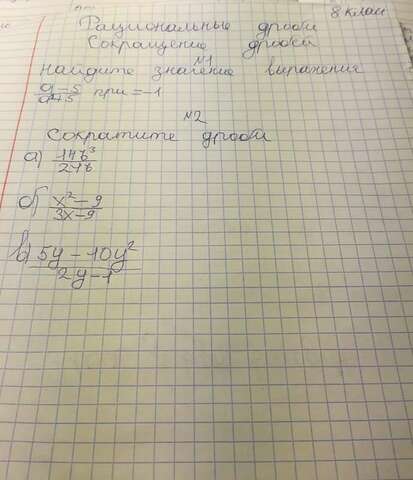 8 класс
Рациональные дроби
Сокращение дробей
№1
найдите значение выражения
a-5/a+5 при =-1
№2
Сократите дроби
а) 14b³/21b
б) x²-9/3x-9
в) 5y-10y²/2y-1